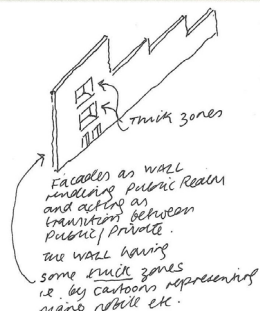 Thick zones
Facades as WALL
rendering Public Realm
and acting as
transition between
Public/Private.
The WALL having
some thick zones
i.e. by cartoons representing
piano nobile etc.